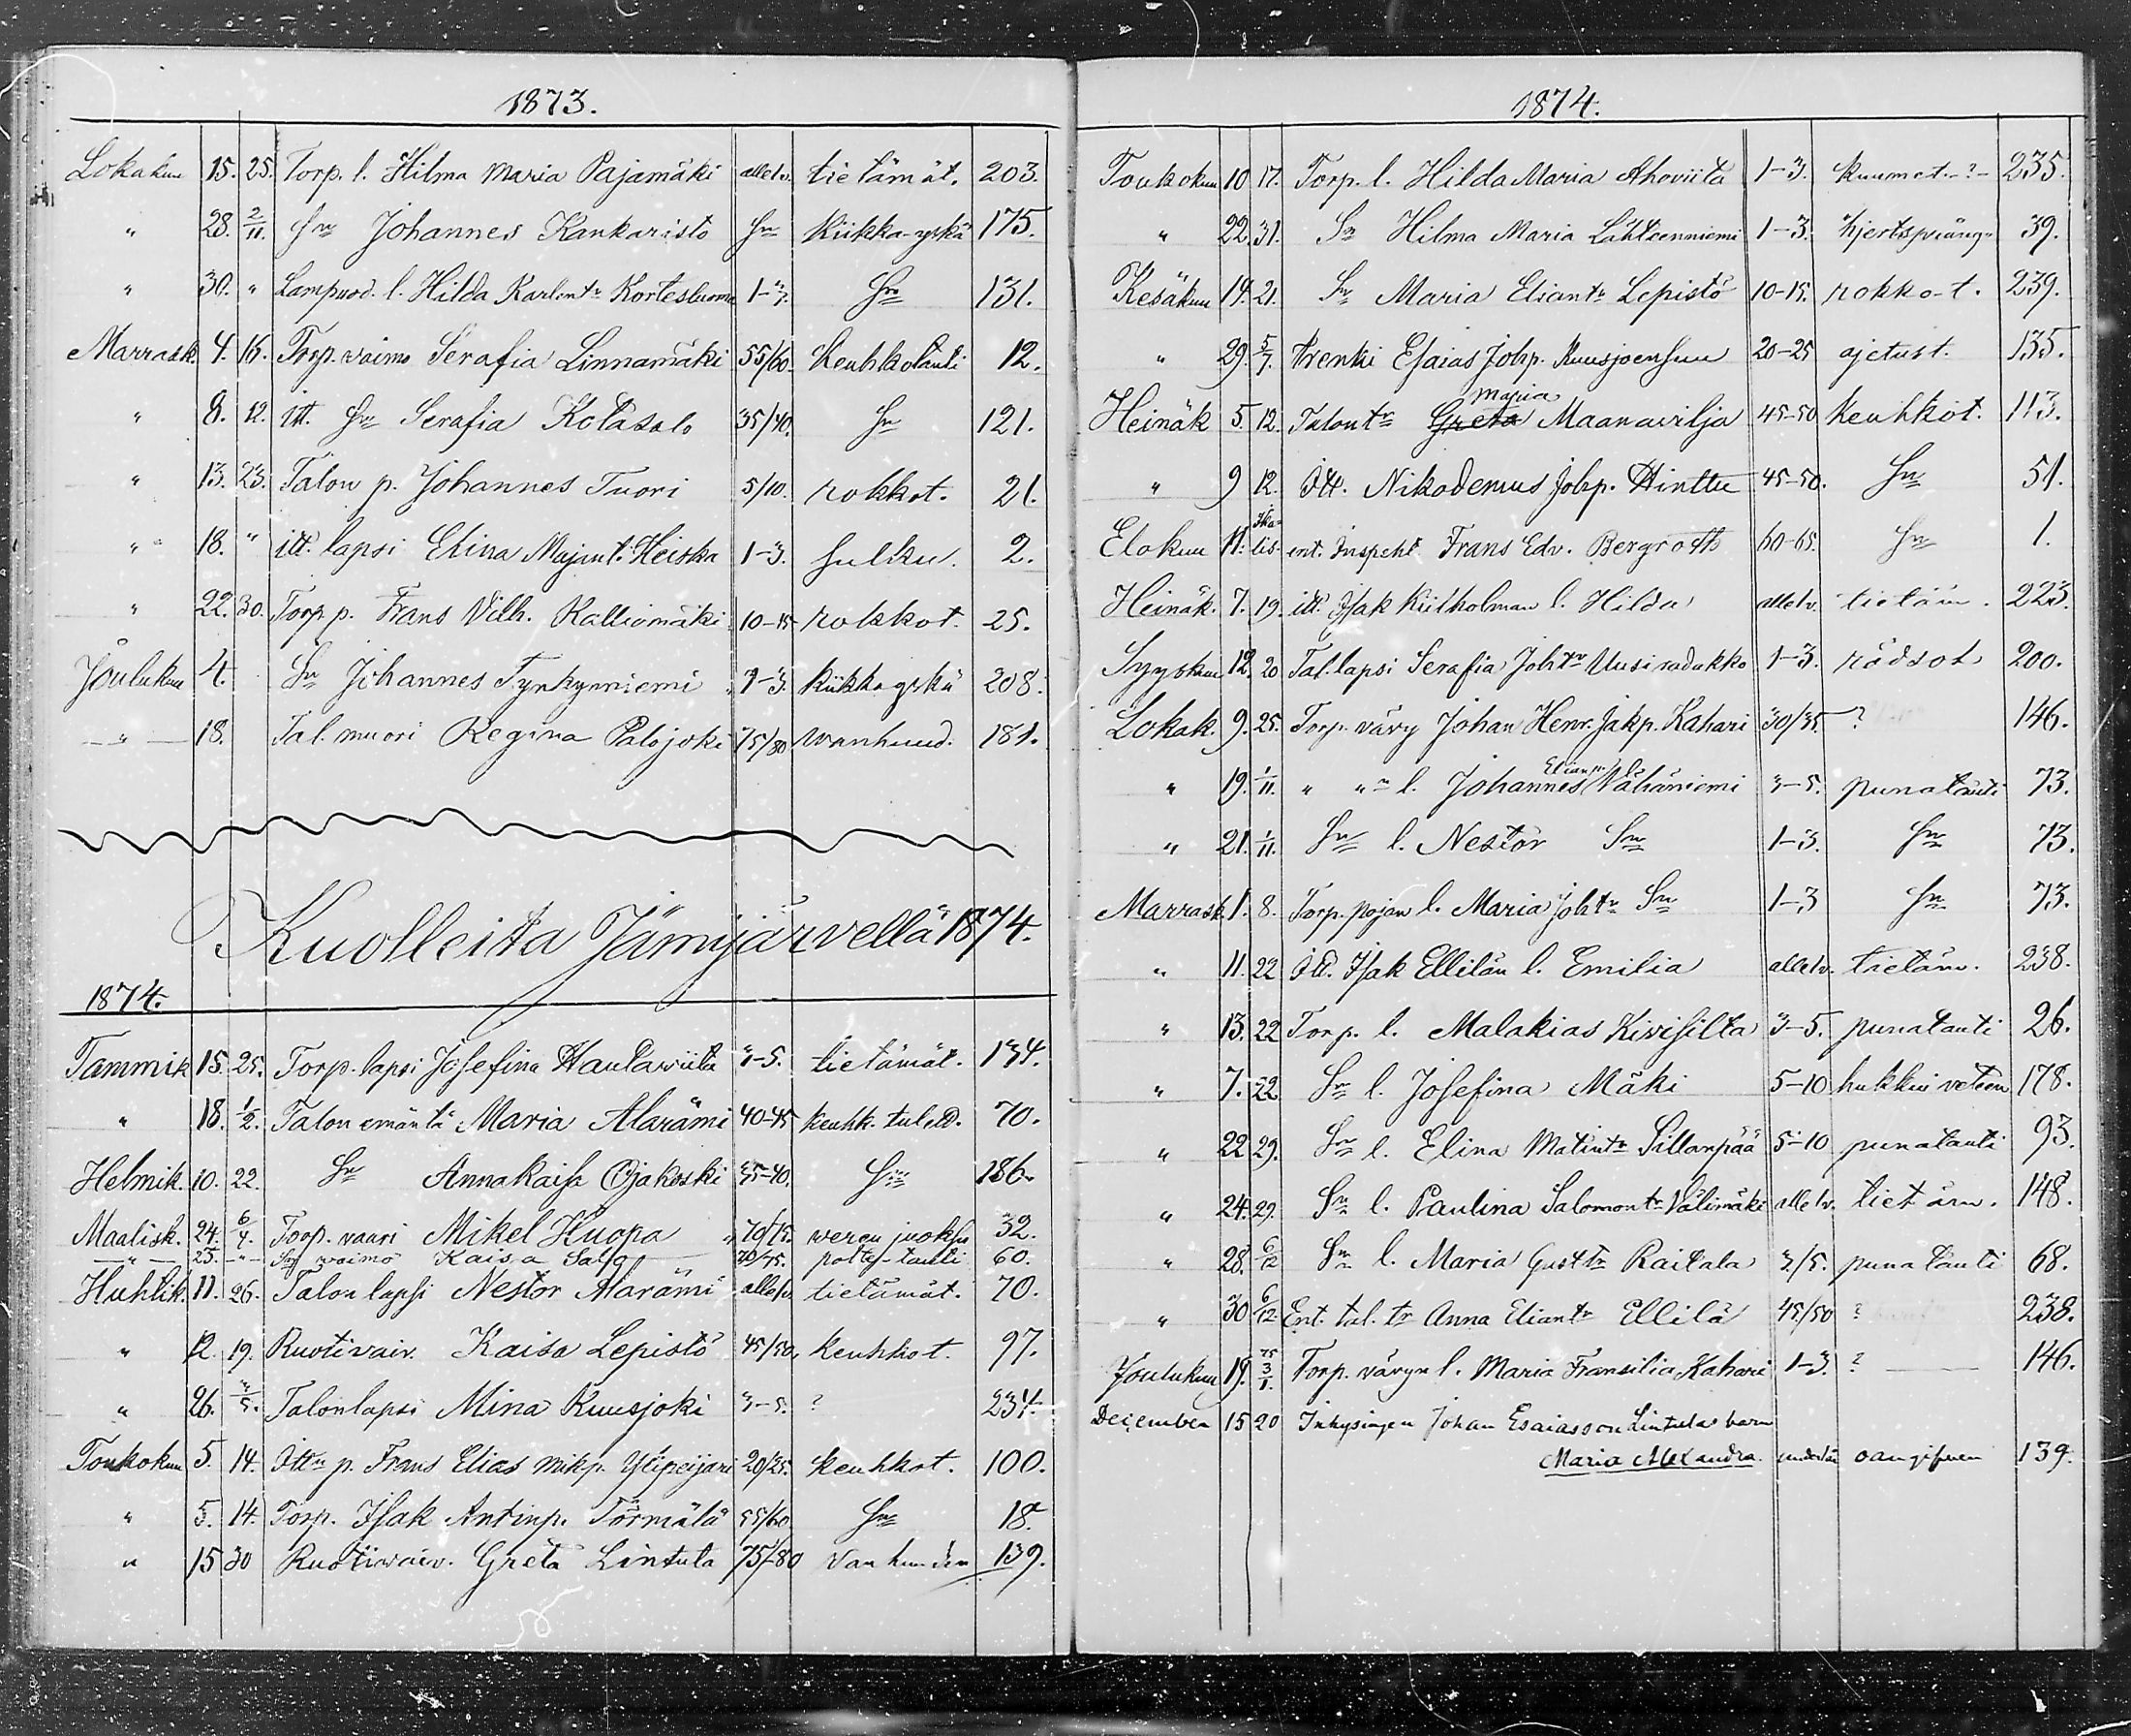 1873.
Lokakuu 15. 25. Torp. l. Hilma Maria Pajamäki alle 1v. tietämät. 203.
" 28. 2/11. Sn Johannes Kankaristo Sn kiikka yskä 175.
" 30. " Lampuod. l. Hilda Karlontr Kortesluoma 1-3. Sn 131.
Marrask. 4. 16. Torp. vaimo Serafia Linnamäki 55/60. keuhkotauti 12.
" 8. 12. itt. Sn Serafia Kotasalo 35/40. Sn 121.
" 13. 23. Talon p. Johannes Tuori 5/10. rokkot. 21.
" 18. " itt. lapsi Elina Majant. Heiska 1-3. 2.
" 22. 30. Torp p. Frans Vilh. Kalliomäki 10-15 rokkot. 25.
Joulukuu 4. Sn Johannes Tynkynniemi 1-3. kiikka yskä 208.
" 18. Tal. muori Regina Palojoki 75/80 wanhuud. 181.
Kuolleita Jämijärvellä 1874.
1874.
Tammik 15. 25. Torp. lapsi Josefina Hautawiita 3-5. tietämät. 134.
" 18. 1/2. Talon emäntä Maria Alarämi 40-45 keuhk. tuled. 70.
Helmik. 10. 22. Sn Annakaisa Ojakoski 35-40. Sn 186.
Maalisk. 24. 6/4. Torp. vaari Mikel Huopa 70/75. veren juoksu 32.
" 25. " Sn vaimo Kaisa Salo 70/75. polte-tauti 60.
Huhtik. 11. 26. Talon lapsi Nestor Alarämi alle 1v. tietämät. 70.
" 12. 19. Ruotivaiv. Kaisa Lepistö 45/50. keuhkot. 97.
" 26. 3/5. Talonlapsi Mina Kuusjoki 3-5. ? 234.
Toukokuu 5. 14. Ittn p. Frans Elias Mikp. Ylipeijari 20/25. keuhkot. 100.
" 5. 14. Torp. Isak Antinp. Törmälä 55/60 Sn 18.
" 15 30 Ruotiwaiv. Greta Lintula 75/80 Vanhuuden 139.
1874.
Toukokuu 10 17. Torp. l. Hilda Maria Ahoviita 1-3. kuumet.-?- 235.
" 22. 31. Sn Hilma Maria Lähteenniemi 1-3. hjertspräng 39.
Kesäkuu 14. 21. Sn Maria Eliantr Lepistö 10-15. rokko-t. 239.
" 29. 5/7. trenki Esaias Johp. Kuusjoensuu 20-25 ajetust. 135.
Maria
Heinäk 5. 12. Talontr Greta Maanavilja 45-50 keuhkot. 113.
" 9 12. Itt. Nikodemus Johp. Hinttu 45-50. Sn 51.
Elokuu 11. Ikalis. ent. Inspeht Frans Edv. Bergroth 60-65. Sn 1.
Heinäk. 7. 19. itt. Isak Kiilholman l. Hilda alle 1v. tietäm. 223.
Syyskuu 12. 20 Tal. lapsi Serafia Johtr Uusiradukko 1-3. rödsot 200.
Lokak. 9. 25. Torp. vävy Johan Henr. Jakp. Kahari 30/35. ? 146.
Elianp.
" 19. 1/11. " " l. Johannes Vähäniemi 3-5. punatauti 73.
" 21. 1/11. Sn l. Nestor Sn 1-3. Sn 73.
Marrask. 1. 8. Torp. pojan l. Maria Johtr Sn 1-3 Sn 73.
" 11. 22 Itt. Isak Ellilän l. Emilia alle 1v. tietäm. 238.
" 13. 22 Torp. l. Malakias Kivisilta 3-5. punatauti 26.
" 7. 22 Sn l. Josefina Mäki 5-10 hukkui veteen 178.
" 22 29. Sn l. Elina Matintr Sillanpää 5-10 punatauti 93.
" 24. 29. Sn l. Paulina Salomontr Välimäki alle 1v. tietäm. 148.
" 28. 6/12 Sn l. Maria Gusttr Raitala 3/5. punatauti 68.
" 30 6/12. Ent. tal. tr Anna Eliantr Ellilä 45/50 ? 238.
Joulukuu 19. 75 3/1. Torp. vävyn l. Maria Fransilia Kahari 1-3. ? 146.
December 15 20 Inhysingen Johan Esaiasson Lintulas barn
Maria Alexandra. under 1 år oangifven 139.